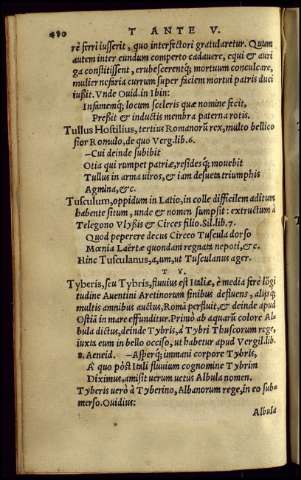 480 T ANTE V.
rè ferri iusserit, quo interfectori gratularetur. Quam
autem inter eundum comperto cadauere, equi & auri
ga constitissent, erubescerentq; mortuum conculcare,
mulier nefaria currum super faciem mortui patris duci
iußit. Vnde Ouid. in Ibin:
Infamemq; locum sceleris quæ nomine fecit,
Preßit & inductis membra paterna rotis.
Tullus Hostilius, tertius Romanorũ rex, multo bellico
sior Romulo, de quo Verg. lib. 6.
—Cui deinde subibit
Otia qui rumpet patriæ, residesq; mouebit
Tullus in arma uiros, & iam desueta triumphis
Agmina, &c.
Tusculum, oppidum in Latio, in colle difficilem aditum
habente situm, unde & nomen sumpsit: extructum à
Telegono Vlyßis & Circes filio. Sil. lib. 7.
Quod peperere decus Circeo Tuscula dorso
Mœnia Laërtæ quondam regnata nepoti, &c.
Hinc Tusculanus, a, um, ut Tusculanus ager.
T Y.
Tyberis, seu Tybris, fluuius est Italiæ, è media ferè lõgi
tudine Auentini Aretinorum finibus defluens, alijsq;
multis amnibus auctus, Romã perfluit, & deinde apud
Ostia in mare effunditur. Primò ab aquarũ colore Al
bula dictus, deinde Tybris, à Tybri Thuscorum rege,
iuxta eum in bello occiso, ut habetur apud Vergil. lib.
8. Aeneid. —Asperq; immani corpore Tybris,
A quo póst Itali fluuium cognomine Tybrim
Diximus, amisit uerum uetus Albula nomen.
Tyberis uerò à Tyberino, Albanorum rege, in eo sub
merso. Ouidius:
Albula